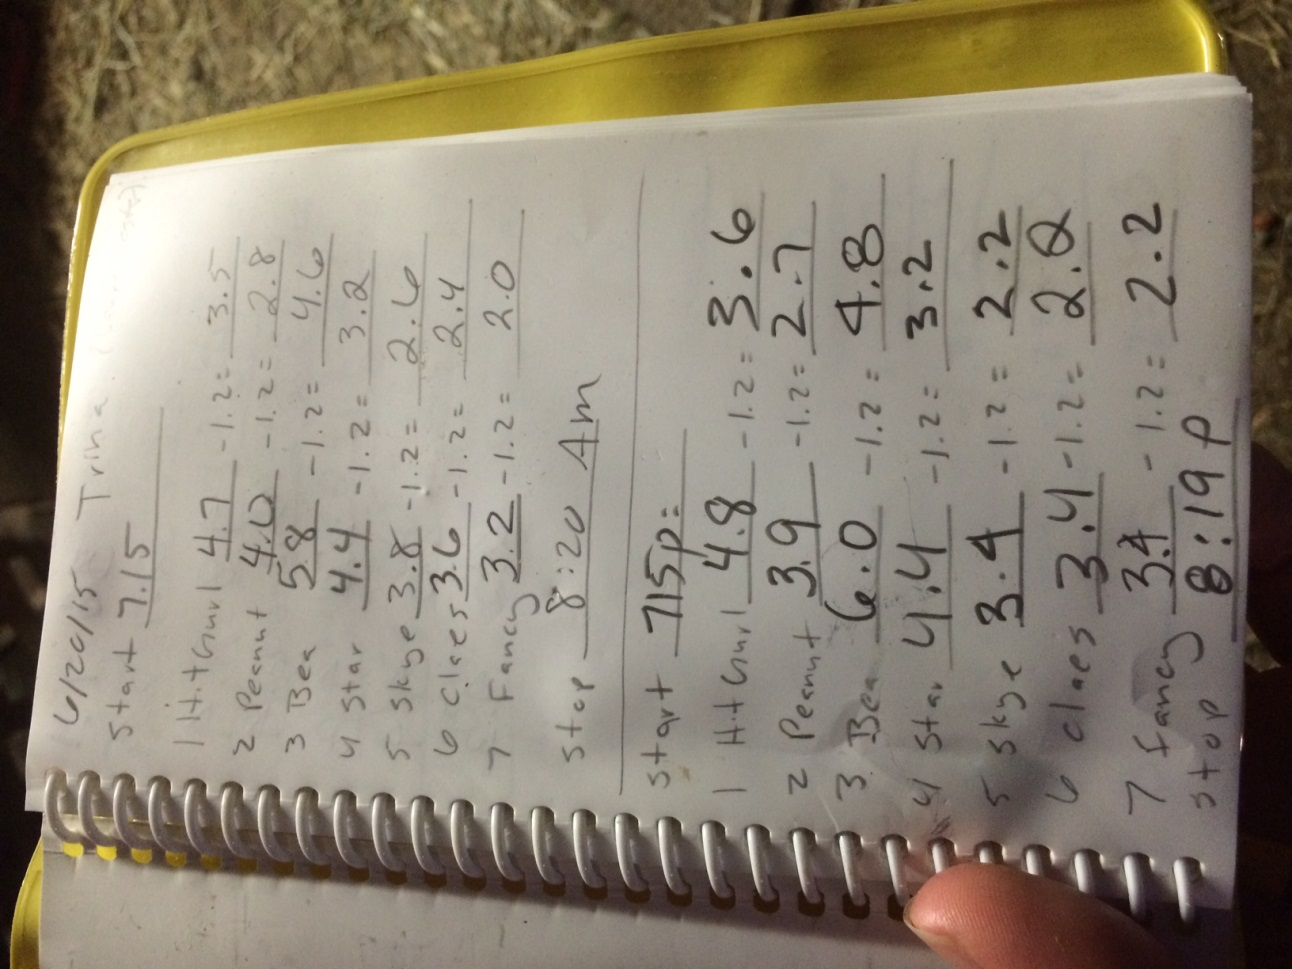 6/20/15 Trina
Start 7:15
1 HitGurl 4.7 -1.2= 3.5
2 Peanut 4.0 -1.2= 2.8
3 Bea 5.8 -1.2= 4.6
4 Star 4.4 -1.2= 3.2
5 Skye 3.8 -1.2= 2.6
6 Claes 3.6 -1.2= 2.4
7 Fancy 3.2 -1.2= 2.0
Stop 8:20 Am
Start 715p:
1 HitGurl 4.8 -1.2= 3.6
2 Peanut 3.9 -1.2= 2.7
3 Bea 6.0 -1.2= 4.8
4 Star 4.4 -1.2= 3.2
5 Skye 3.4 -1.2= 2.2
6 Claes 3.4 -1.2= 2.2
7 fancy 3.4 -1.2= 2.2
Stop 8:19 p